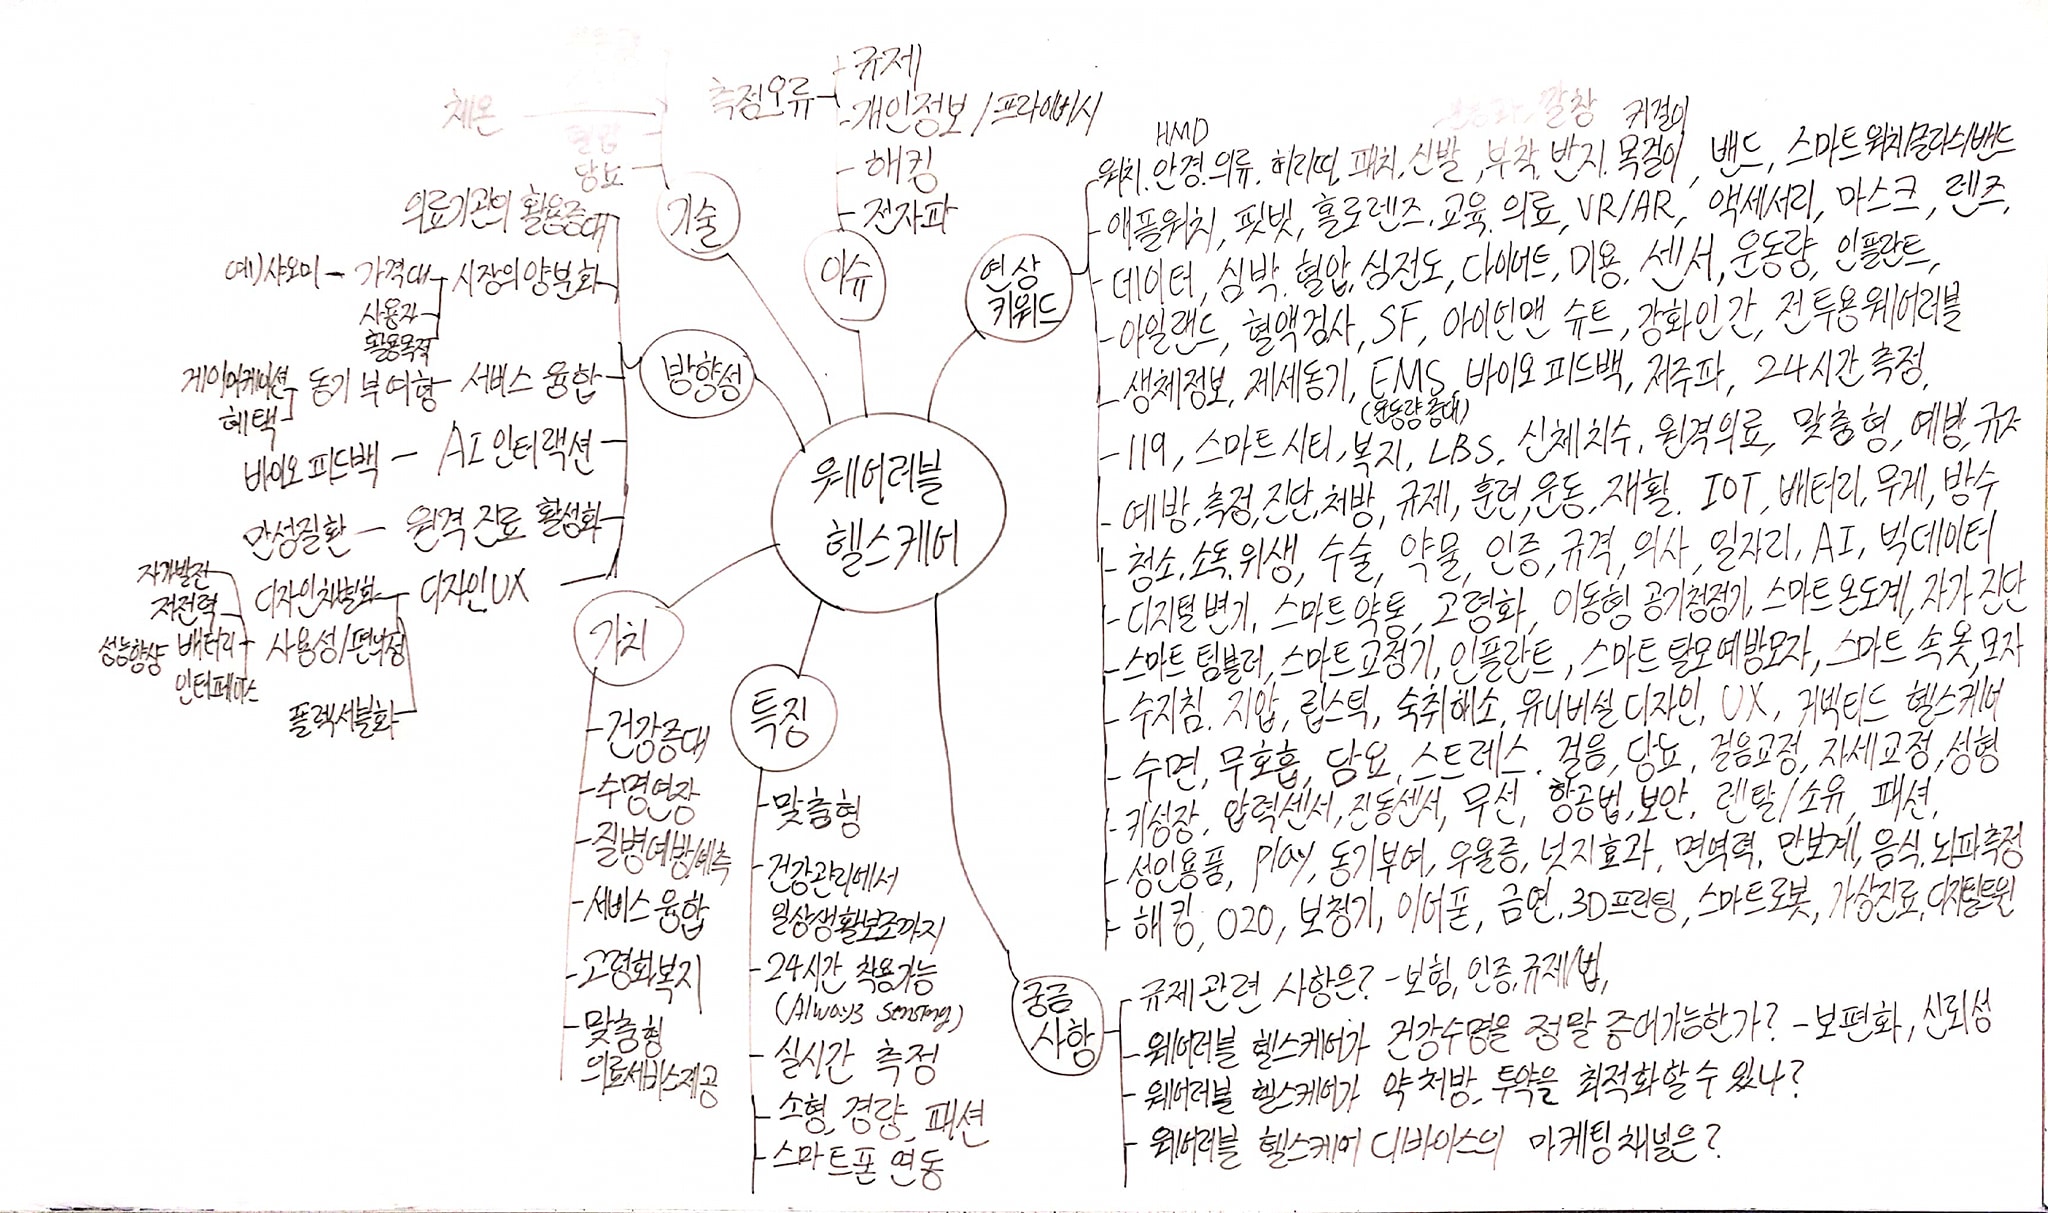 웨어러블
헬스케어
기술
체온
혈압
당뇨
이슈
측정오류
규제
개인정보/프라이버시
해킹
전자파
연상
키워드
깔창 귀걸이
HMD
워치, 안경, 의류, 허리띠, 패치, 신발, 부착, 반지, 목걸이, 밴드, 스마트워치/글라스/밴드
애플워치, 핏빗, 홀로렌즈, 교육, 의료, VR/AR, 액세서리, 마스크, 렌즈,
데이터, 심박, 혈압, 심전도, 다이어트, 미용, 센서, 운동량, 인플란트,
아일랜드, 혈액검사, SF, 아이언맨 슈트, 강화인간, 전투용웨어러블
생체정보, 제세동기, EMS, 바이오피드백, 저주파, 24시간측정,
(운동량증대)
119, 스마트시티, 복지, LBS, 신체치수, 원격의료, 맞춤형, 예방, 규제
예방, 측정, 진단, 처방, 규제, 훈련, 운동, 재활, IOT, 배터리, 무게, 방수
청소, 소독, 위생, 수술, 약물, 인증, 규격, 의사, 일자리, AI, 빅데이터
디지털변기, 스마트약통, 고령화, 이동형 공기청정기, 스마트온도계, 자가진단
스마트 텀블러, 스마트교정기, 인플란트, 스마트 탈모예방모자, 스마트 속옷, 모자
수지침, 지압, 립스틱, 숙취해소, 유니버설디자인, UX, 커넥티드 헬스케어
수면, 무호흡, 담요, 스트레스, 걸음, 당뇨, 걸음교정, 자세교정, 성형
키성장, 압력센서, 진동센서, 무선, 항공법, 보안, 렌탈/소유, 패션,
성인용품, play, 동기부여, 우울증, 넛지효과, 면역력, 만보계, 음식, 뇌파측정
해킹, O2O, 보청기, 이어폰, 금연, 3D프린팅, 스마트로봇, 가상진료, 디지털트윈
방향성
의료기관의 활용증대
시장의 양분화
가격대
예) 샤오미
사용자
활용목적
서비스 융합
동기 부여형
게이미케이션
혜택
AI 인터랙션
바이오 피드백
원격 진료 활성화
만성질환
디자인 UX
디자인차별화
사용성/편의성
자가발전
저전력
성능향상 배터리
인터페이스
플렉서블화
가치
건강증대
수명연장
질병예방/예측
서비스 융합
고령화복지
맞춤형
의료서비스제공
특징
맞춤형
건강관리에서
일상생활보조까지
24시간 착용가능
(Always sensing)
실시간 측정
소형, 경량, 패션
스마트폰 연동
궁금
사항
규제 관련 사항은? - 보험, 인증, 규제/법,
웨어러블 헬스케어가 건강수명을 정말 증대가능한가? - 보편화, 신뢰성
웨어러블 헬스케어가 약 처방, 투약을 최적화할 수 있나?
웨어러블 헬스케어 디바이스의 마케팅채널은?